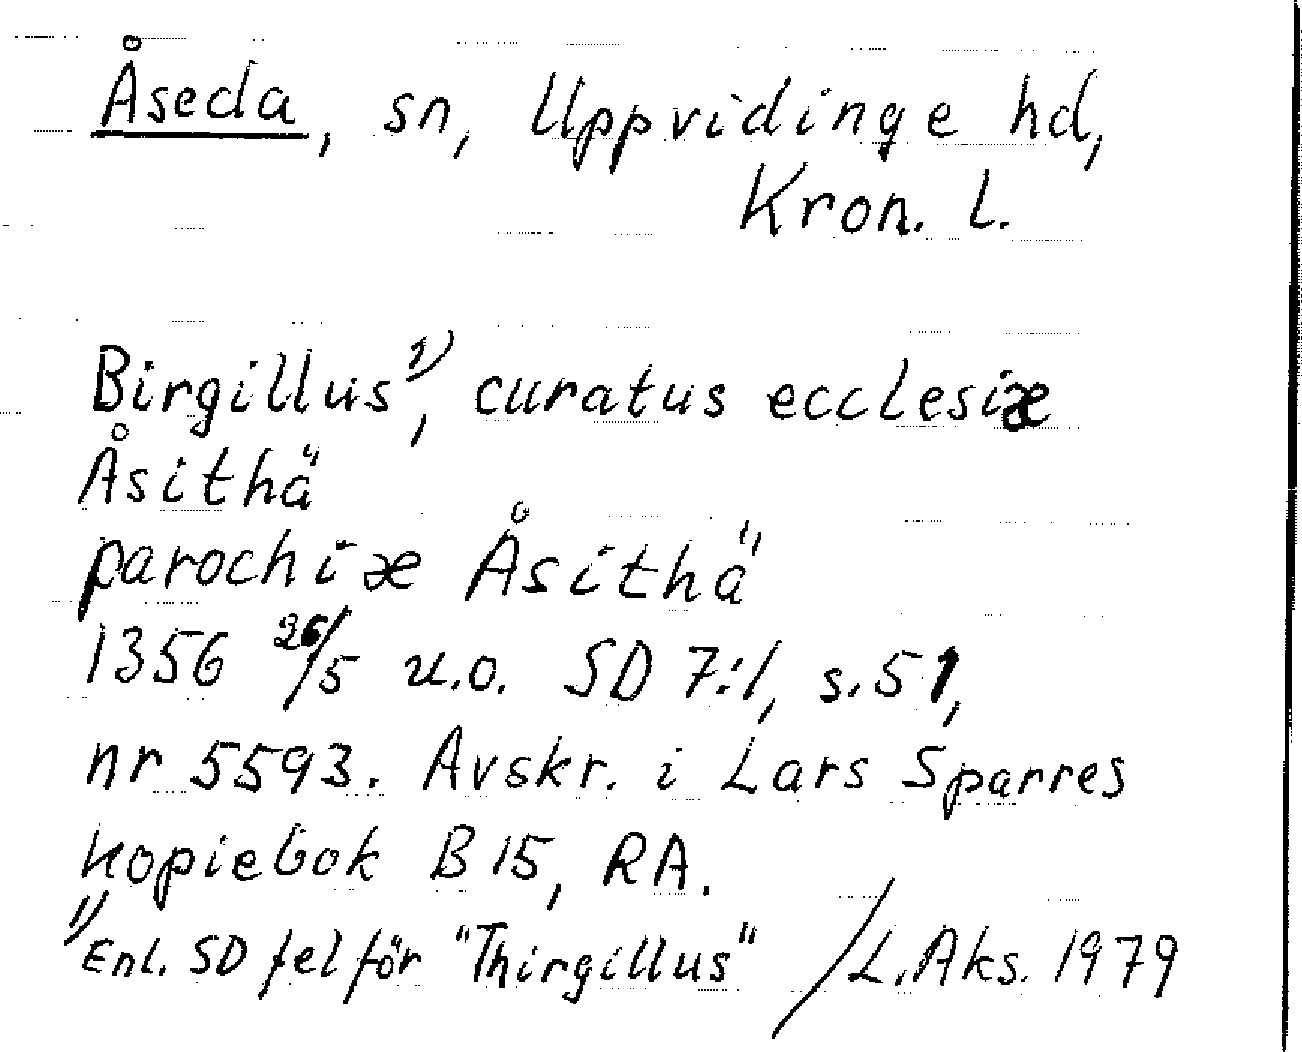 Åseda, sn, Uppvidinge hd,
Kron. l.
Birgillus 1), curatus ecclesiæ
Åsithä
parochiæ Åsithä
1356 26/5 u.o. SD 7:1, s. 51,
nr 5593. Avskr. i Lars Sparres
kopiebok B 15, RA.
1) Enl. SD fel för "Thirgillus" / L. Aks. 1979